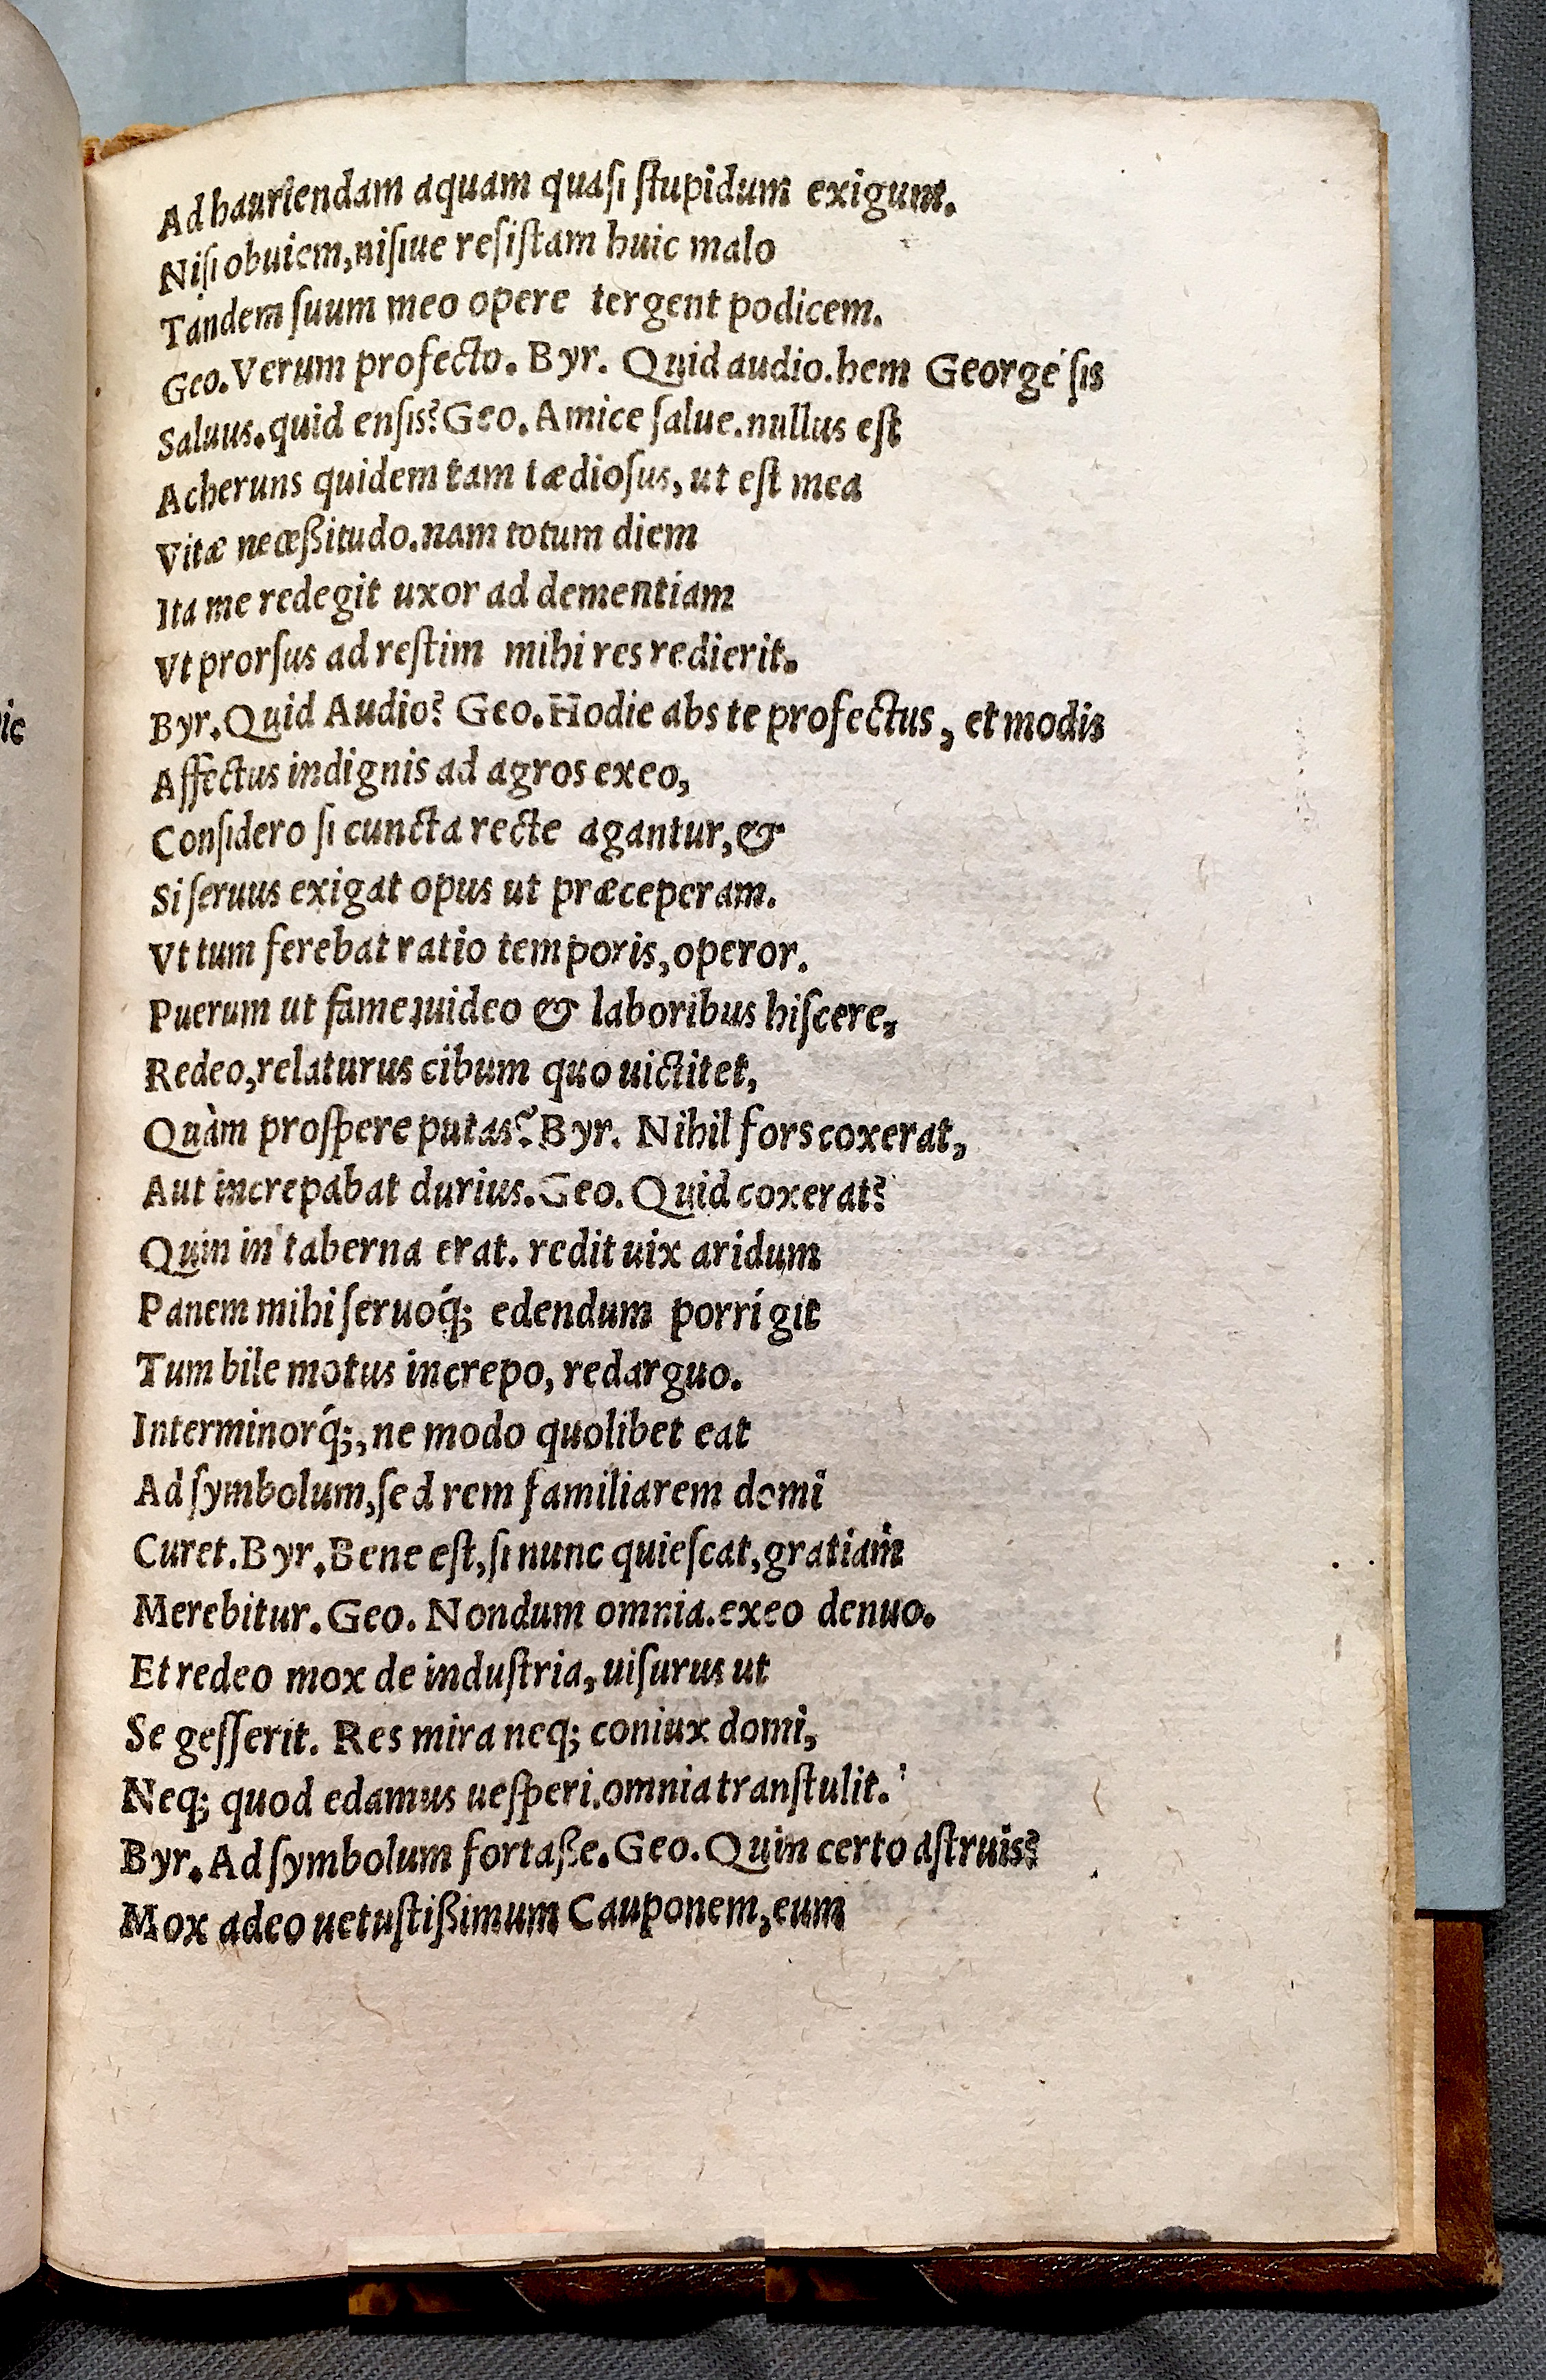 Ad hauriendam aquam quaſi ſtupidum exigunt.
Niſi obuiem, niſiue reſiſtam huic malo
Tandem ſuum meo opere tergent podicem.
Geo. Verum profecto. Byr. Quid audio. hem George ſis
Saluus. quid enſis? Geo. Amice ſalue. nullus eſt
Acheruns quidem tam tædioſus, ut eſt mea
Vitæ neceßitudo. nam totum diem
Ita me redegit uxor ad dementiam
Vt prorſus ad reſtim mihi res redierit.
Byr. Quid Audio? Geo. Hodie abs te profectus, et modis
Affectus indignis ad agros exeo,
Conſidero ſi cuncta recte agantur, &
Si ſeruus exigat opus ut præceperam.
Vt tum ferebat ratio temporis, operor.
Puerum ut fame uideo & laboribus hiſcere,
Redeo, relaturus cibum quo uictitet,
Quàm proſpere putas? Byr. Nihil fors coxerat,
Aut increpabat durius. Geo. Quid coxerat?
Quin in taberna erat. redit uix aridum
Panem mihi ſeruoq́; edendum porrigit
Tum bile motus increpo, redarguo.
Interminorq́;, ne modo quolibet eat
Ad ſymbolum, ſed rem familiarem domi
Curet. Byr. Bene eſt, ſi nunc quieſcat, gratiam
Merebitur. Geo. Nondum omnia. exeo denuo.
Et redeo mox de induſtria, uiſurus ut
Se geſſerit. Res mira neq; coniux domi,
Neq; quod edamus ueſperi. omnia tranſtulit.
Byr. Ad ſymbolum fortaße. Geo. Quin certo aſtruis?
Mox adeo uetuſtißimum Cauponem, eum